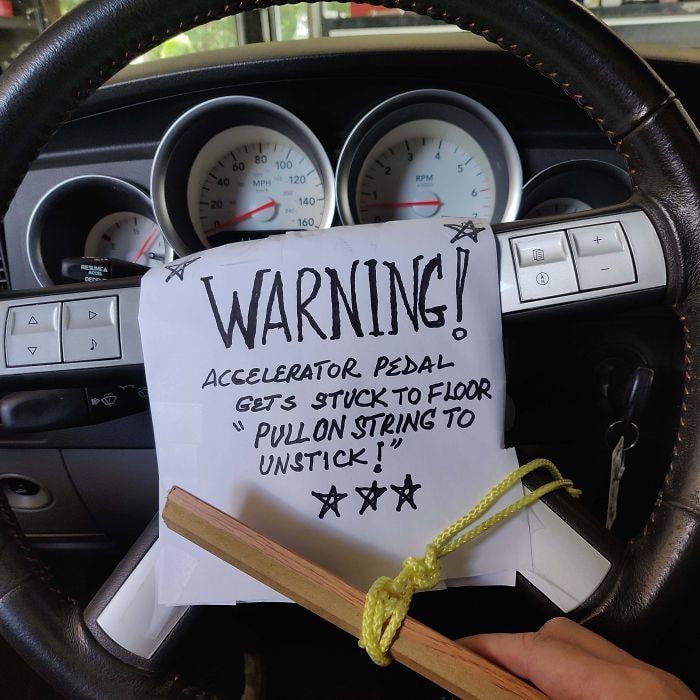 40 60 80 100 120
20 140
0 160
MPH
RPM
1 2 3 4 5 6 7
RESUME
ACCEL
WARNING!
ACCELERATOR PEDAL
GETS STUCK TO FLOOR
"PULL ON STRING TO
UNSTICK!"